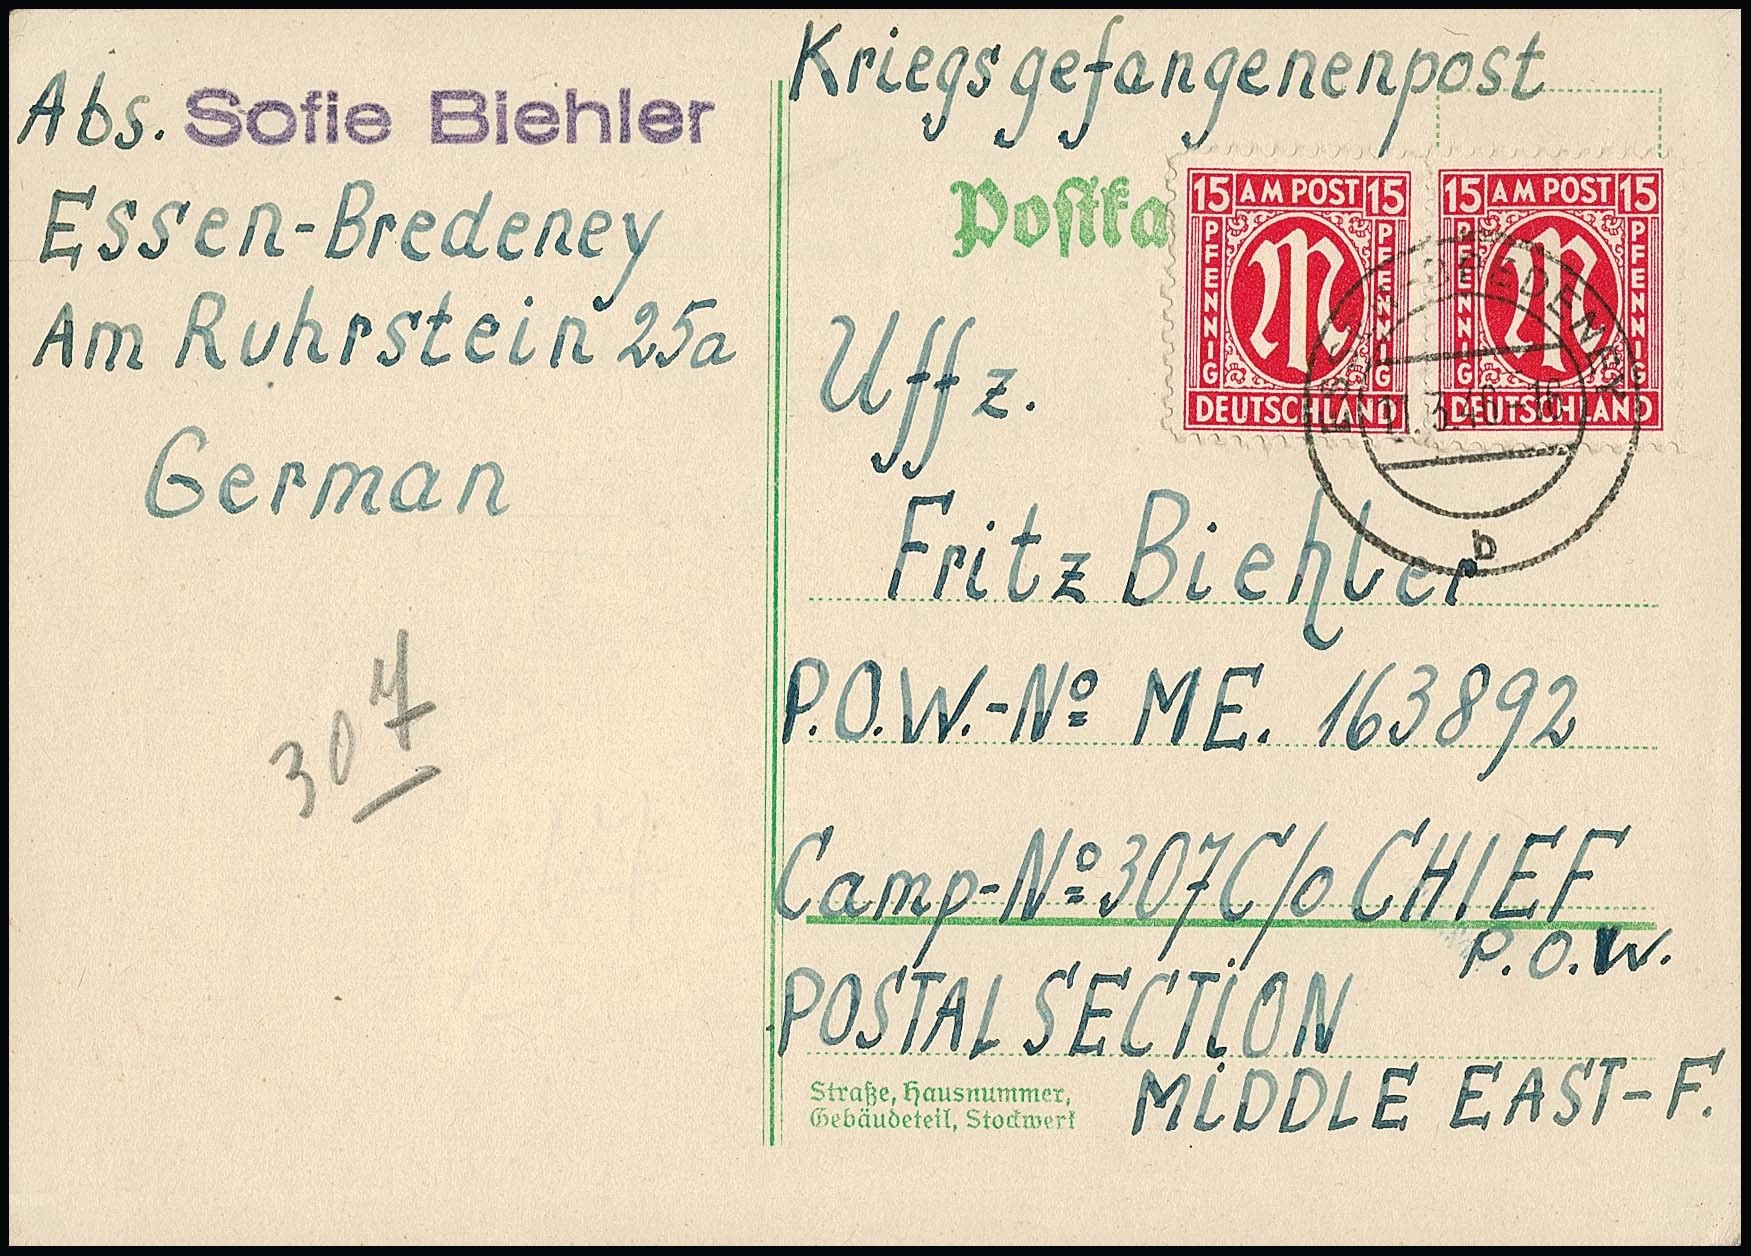 Kriegsgefangenenpost
Abs. Sofie Biehler
Essen-Bredeney
Am Ruhrstein 25a
German
30 7
Postka
15 AM POST 15
PFENNIG
PFENNIG
DEUTSCHLAND
15 AM POST 15
PFENNIG
PFENNIG
DEUTSCHLAND
ESSEN-BREDENEY
.3.46-16
b
Uffz.
Fritz Biehler
P.O.W.-Nº ME. 163892
Camp-Nº 307 C/o CHIEF
P.O.W.
POSTAL SECTION
MIDDLE EAST-F.
Straße, Hausnummer,
Gebäudeteil, Stockwerk